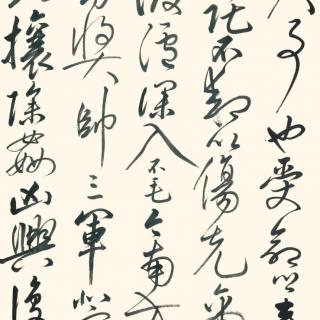 事也受命以来
託不効以傷先帝
渡瀘深入不毛今南方
獎帥三軍北
攘除姦凶興復